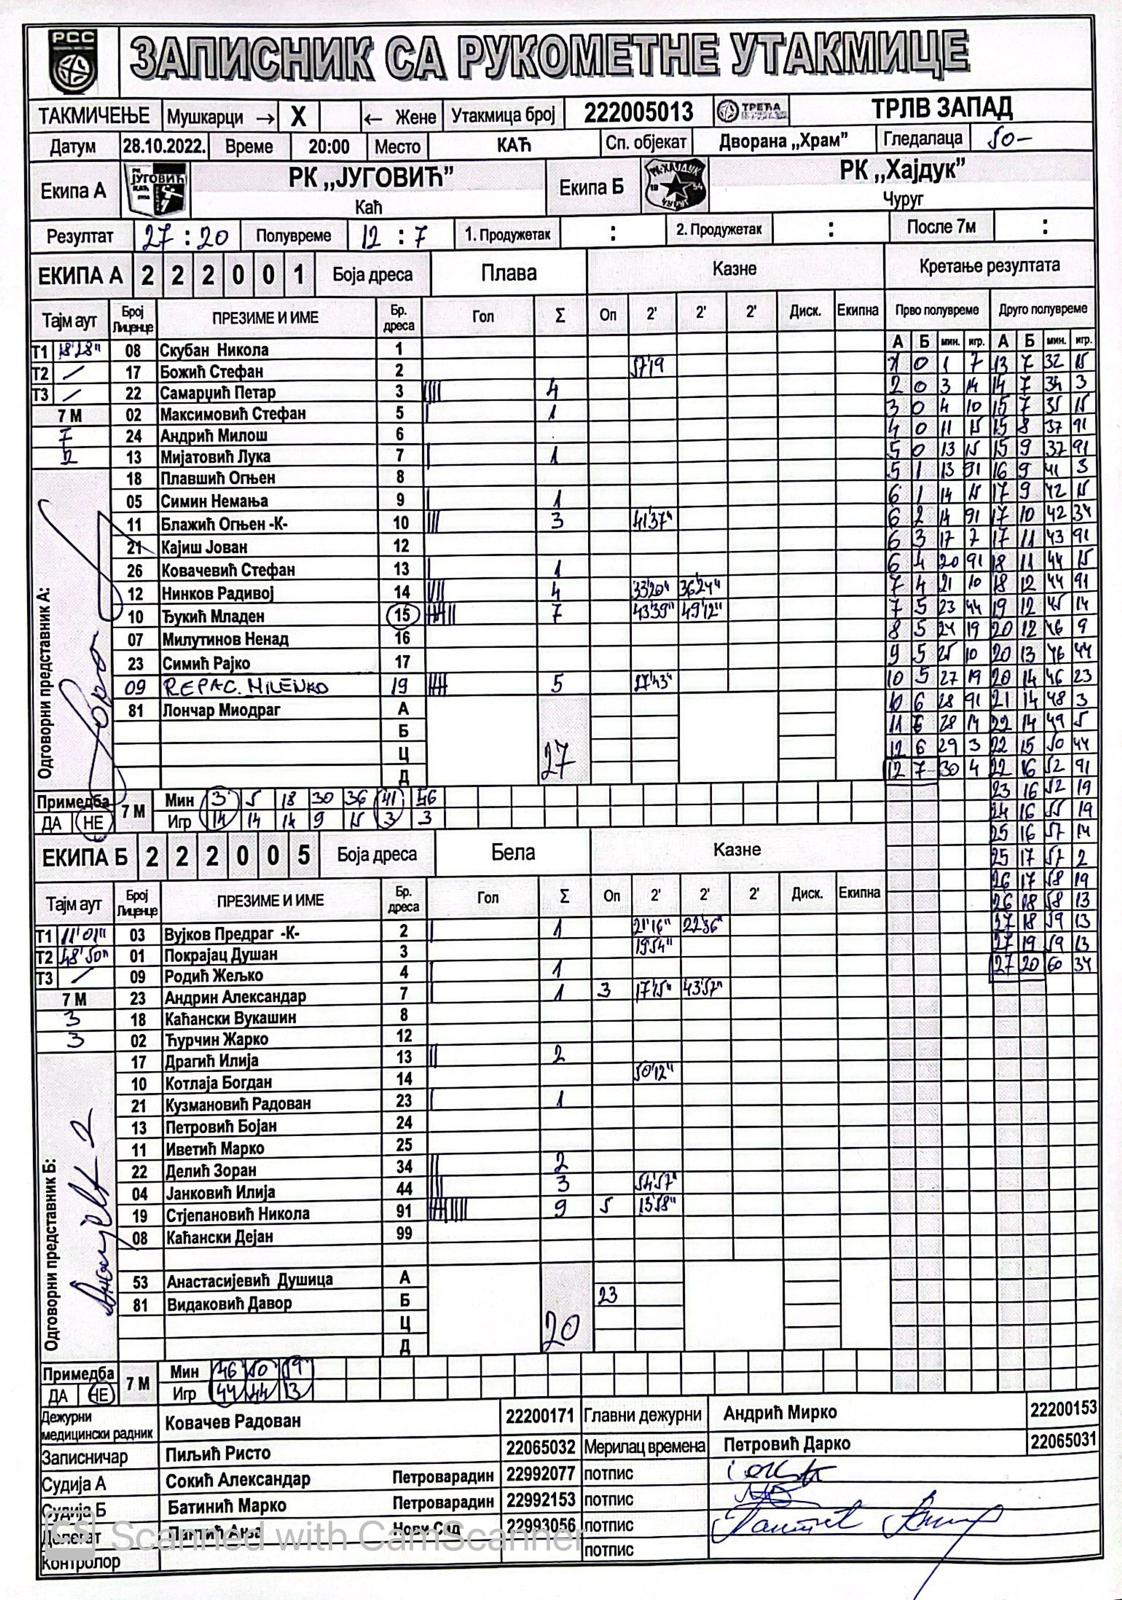 РСС
ЗАПИСНИК СА РУКОМЕТНЕ УТАКМИЦЕ
ТАКМИЧЕЊЕ Мушкарци → X ← Жене Утакмица број 222005013 ТРЕЋА ТРЛВ ЗАПАД
Датум 28.10.2022. Време 20:00 Место КАЋ Сп. објекат Дворана ,,Храм” Гледалаца 50-
Екипа А РК ,,ЈУГОВИЋ” Каћ Екипа Б РК ,,Хајдук” Чуруг
Резултат 27 : 20 Полувреме 12 : 7 1. Продужетак : 2. Продужетак : После 7м :
ЕКИПА А 2 2 2 0 0 1 Боја дреса Плава Казне Кретање резултата
Тајм аут Број Лиценце ПРЕЗИМЕ И ИМЕ Бр. дреса Гол Σ Оп 2' 2' 2' Диск. Екипна Прво полувреме Друго полувреме
А Б мин. игр. А Б мин. игр.
T1 18'28" 08 Скубан Никола 1
T2 / 17 Божић Стефан 2 57'19
T3 / 22 Самарџић Петар 3 4
7 М 02 Максимовић Стефан 5 1
7 24 Андрић Милош 6
2 13 Мијатовић Лука 7 1
18 Плавшић Огњен 8
05 Симин Немања 9 1
11 Блажић Огњен -К- 10 3 41'37"
21 Кајиш Јован 12
26 Ковачевић Стефан 13 1
12 Нинков Радивој 14 4 33'20" 36'24"
10 Ђукић Младен 15 7 43'39" 49'12"
07 Милутинов Ненад 16
23 Симић Рајко 17
09 REPAC MILENKO 19 5 27'43"
81 Лончар Миодраг А
Б
Ц
Д
27
Одговорни представник А:
1 0 1 7 13 7 32 15
2 0 3 14 14 7 34 3
3 0 4 10 15 7 35 15
4 0 11 15 15 8 37 91
5 0 13 15 15 9 37 91
5 1 13 91 16 9 41 3
6 1 14 15 17 9 42 15
6 2 14 91 17 10 42 34
6 3 17 7 17 11 43 91
6 4 20 91 18 11 44 15
7 4 21 10 18 12 44 91
7 5 23 44 19 12 45 14
8 5 24 19 20 12 46 9
9 5 25 10 20 13 46 44
10 5 27 19 20 14 46 23
10 6 28 91 21 14 48 3
11 6 28 14 22 14 49 5
12 6 29 3 22 15 50 44
12 7 30 4 22 16 52 91
23 16 52 19
24 16 55 19
25 16 57 14
25 17 57 2
26 17 58 19
26 18 58 13
27 18 59 13
27 19 59 13
27 20 60 34
Примедба 7 М Мин 3 5 18 30 36 41 46
ДА НЕ Игр 14 14 14 9 15 3 3
ЕКИПА Б 2 2 2 0 0 5 Боја дреса Бела Казне
Тајм аут Број Лиценце ПРЕЗИМЕ И ИМЕ Бр. дреса Гол Σ Оп 2' 2' 2' Диск. Екипна
T1 11'01" 03 Вујков Предраг -К- 2 1 21'16" 22'36"
T2 48'50" 01 Покрајац Душан 3 19'54"
T3 / 09 Родић Жељко 4 1
7 М 23 Андрин Александар 7 1 3 17'15" 43'57"
3 18 Каћански Вукашин 8
3 02 Ћурчин Жарко 12
17 Драгић Илија 13 2
10 Котлаја Богдан 14 50'12"
21 Кузмановић Радован 23 1
13 Петровић Бојан 24
11 Иветић Марко 25
22 Делић Зоран 34 2
04 Јанковић Илија 44 3 54'57"
19 Стјепановић Никола 91 9 5 13'58"
08 Каћански Дејан 99
53 Анастасијевић Душица А
81 Видаковић Давор Б 23
Ц
Д
20
Одговорни представник Б:
Примедба 7 М Мин 46 50 59
ДА НЕ Игр 44 44 13
Дежурни медицински радник Ковачев Радован 22200171 Главни дежурни Андрић Мирко 22200153
Записничар Пиљић Ристо 22065032 Мерилац времена Петровић Дарко 22065031
Судија А Сокић Александар Петроварадин 22992077 потпис
Судија Б Батинић Марко Петроварадин 22992153 потпис
Делегат Пантић Ања Нови Сад 22993056 потпис
Контролор потпис
Scanned with CamScanner